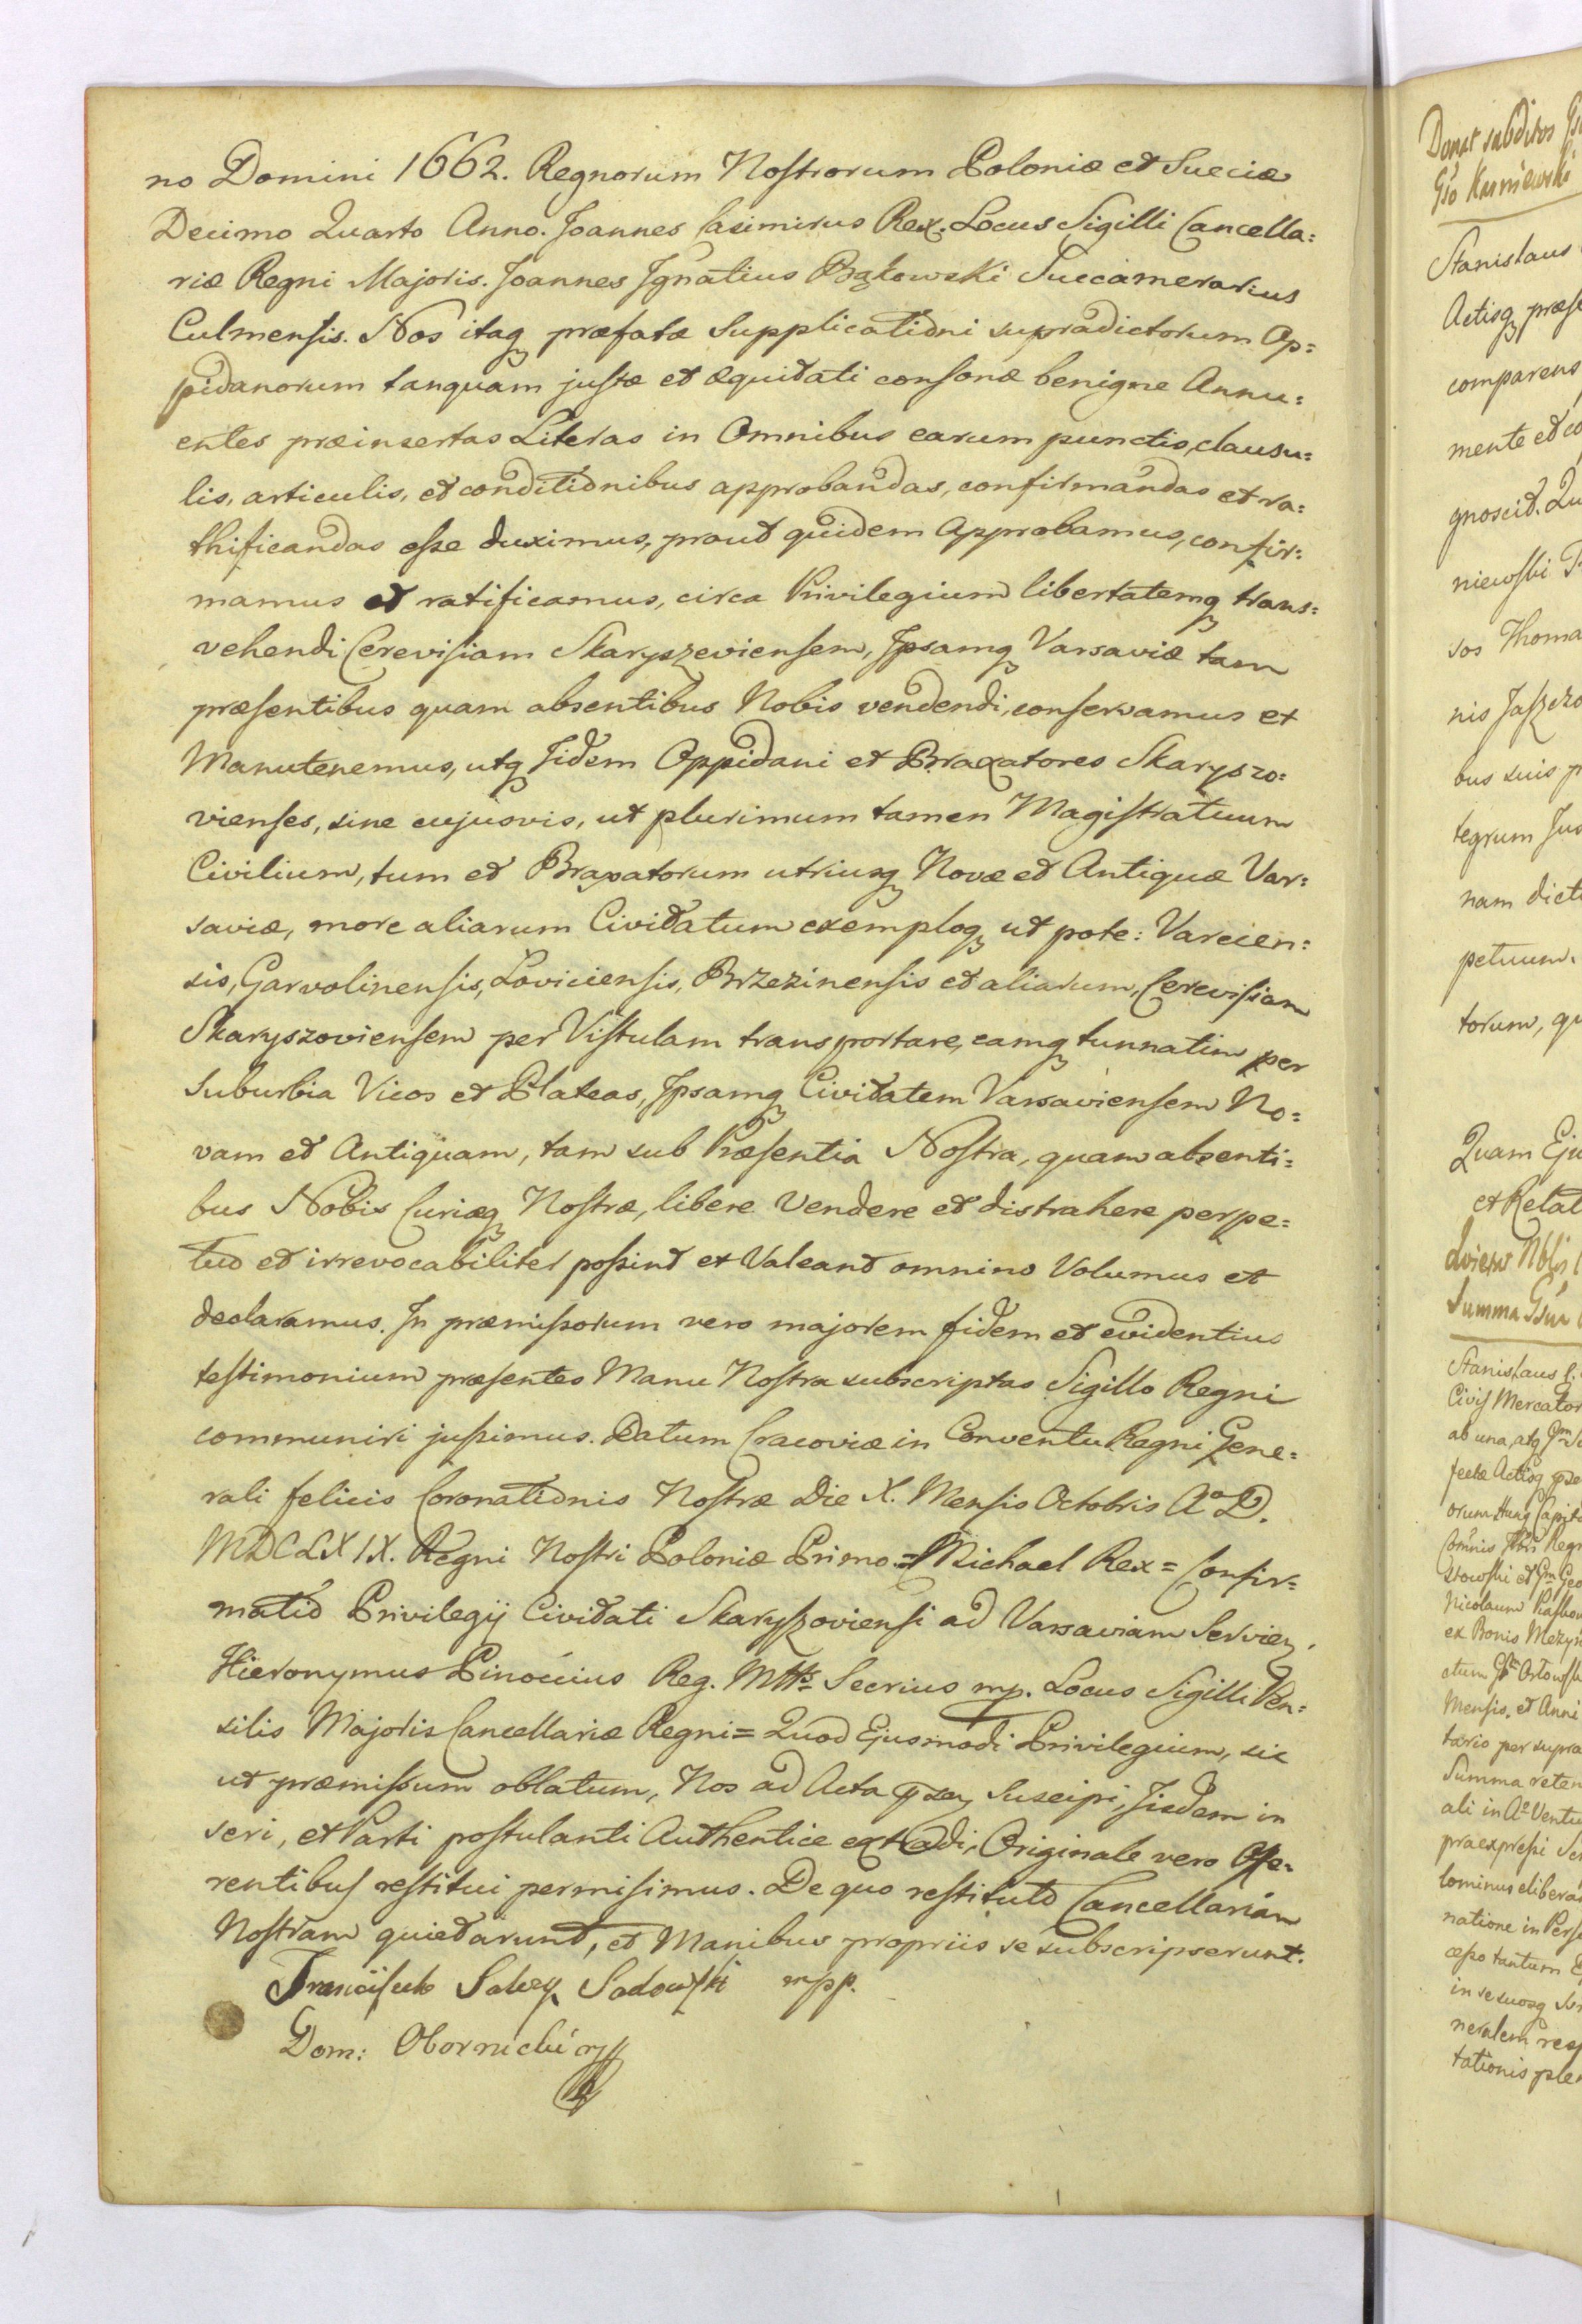 no Domini 1662. Regnorum Nostrorum Poloniæ et Sueciæ
Decimo Quarto Anno. Joannes Casimirus Rex. Locus Sigilli Cancella=
riæ Regni Majoris. Joannes Ignatius Bąkowski Succamerarius
Culmensis. Nos itaq præfatæ Supplicationi supradictorum Op=
pidanorum tanquam justæ et æquitati consonæ benigne Annu=
entes præinsertas Literas in Omnibus earum punctis, clausu=
lis, articulis, et conditionibus approbandas, confirmandas et ra=
thificandas esse duximus, prout quidem Approbamus, confir=
mamus et ratificamus, circa Privilegium libertatemq trans=
vehendi Cerevisiam Skaryszeviensem, Ipsamq Varsaviæ tam
præsentibus quam absentibus Nobis vendendi, conservamus et
Manutenemus, utq Iidem Oppidani et Braxatores Skaryszo=
vienses, sine cujusvis, ut plurimum tamen Magistratuum
Civilium, tum et Braxatorum utriusq Novæ et Antiquæ Var=
saviæ, more aliarum Civitatum exemploq ut pote: Varcien=
sis, Garvolinensis, Loviciensis, Brzezinensis et aliarum, Cerevisiam
Skaryszoviensem per Vistulam transportare, eamq tunnatim per
Suburbia Vicos et Plateas, Ipsamq Civitatem Varsaviensem No=
vam et Antiquam, tam sub Præsentia Nostra, quam absenti=
bus Nobis Curiæq Nostræ, libere Vendere et distrahere perpe=
tuo et irrevocabiliter possint et Valeant omnino Volumus et
declaramus. In præmissorum vero majorem fidem et evidentius
testimonium præsentes Manu Nostra subscriptas Sigillo Regni
communiri jussimus. Datum Cracoviæ in Conventu Regni Gene=
rali felicis Coronationis Nostræ Die X. Mensis Octobris Aº D.
MDCLXIX. Regni Nostri Poloniæ Primo = Michael Rex = Confir=
matio Privilegij Civitati Skaryszoviensi ad Varsaviam Servien.
Hieronymus Pinoccius Reg. Mttis Secrius mp. Locus Sigilli Pen=
silis Majoris Cancellariæ Regni = Quod Ejusmodi Privilegium, sic
ut præmissum oblatum, Nos ad Acta Suscipi, Iisdem in
seri, et Parti postulanti Authentice extradi, Originale vero Offe=
rentibus restitui permisimus. De quo restituto Cancellariam
Nostram quietarunt, et Manibus propriis se subscripserunt.
Sadowski mpp.
Dom: Obornicki mp
Donat subditos
Gso Kuniewski
Stanislaus
Actisq
comparens
mente et
gnoscit. Qu
niewski
sos Thoma
nis
bus suis
tegrum Jus
nam dict
petuum.
torum, qu
Quam Eju
et Relat
Summa
Stanislaus
Civis Mercator
ab una, atq
fectæ Actisq
Regn
Nicolaum
ex Bonis
ctum
Mensis, et Anni
tario per supra
Summa reten
ali in Aº Ventu
praexpressi
lominus
natione in Pers
tantum
in se suosq
neralem
tationis ple